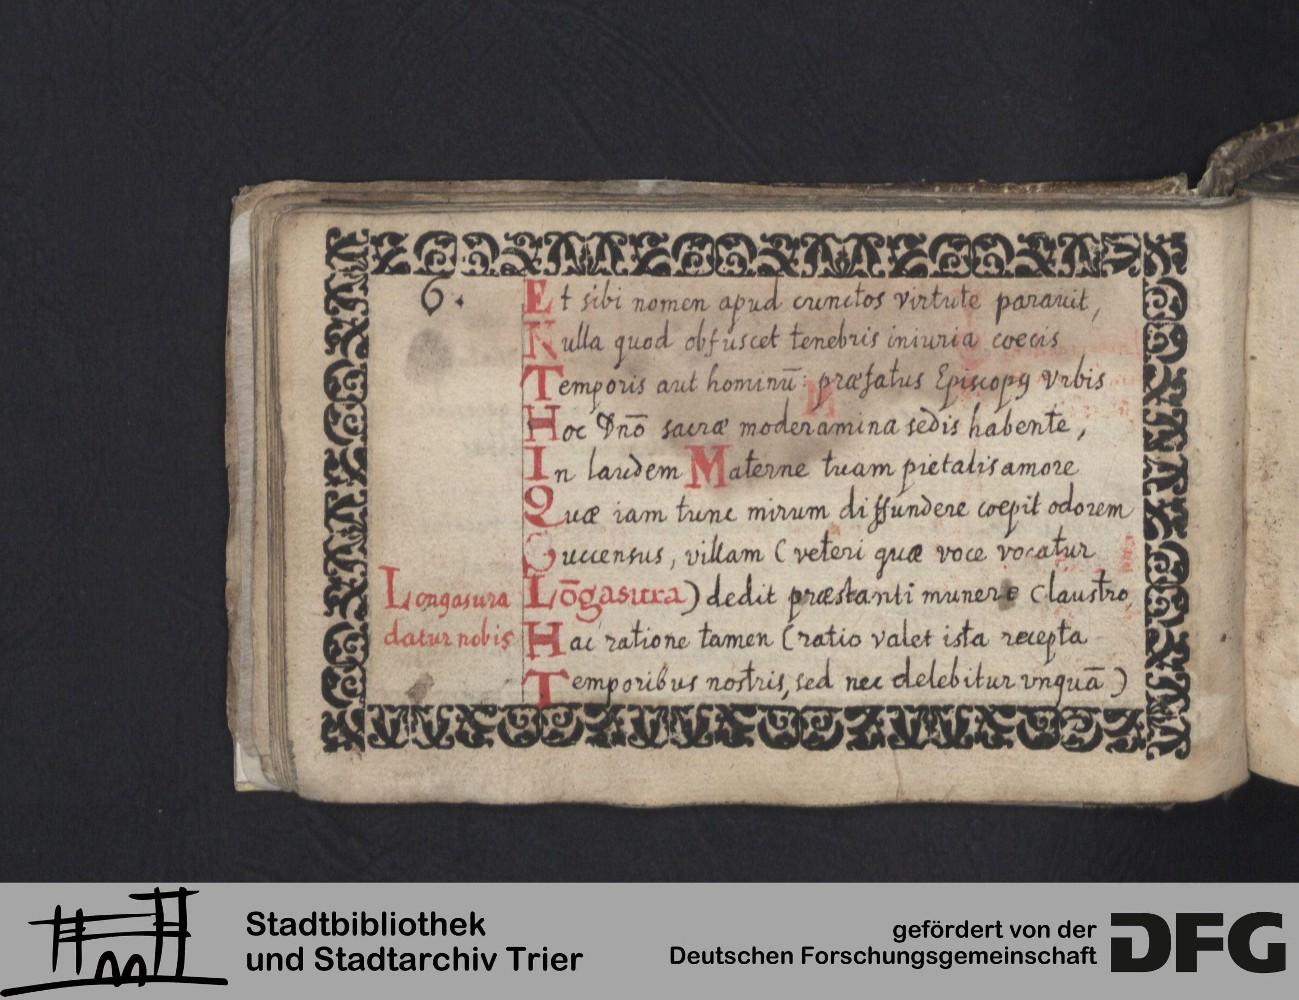 6.
Et sibi nomen apud cunctos virtute parauit,
Nulla quod obfuscet tenebris iniuria coecis
Temporis aut hominū: præfatus Episcopꝯ Vrbis
Hoc Dnō sacræ moderamina sedis habente,
In laudem Materne tuam pietatis amore
Quæ iam tunc mirum diffundere coepit odorem
Succensus, villam (veteri quæ voce vocatur
Longasura
Lōgasura) dedit præstanti munere Claustro,
datur nobis
Hac ratione tamen (ratio valet ista recepta
Temporibus nostris, sed nec delebitur vnquā)
Stadtbibliothek
und Stadtarchiv Trier
gefördert von der
Deutschen Forschungsgemeinschaft
DFG